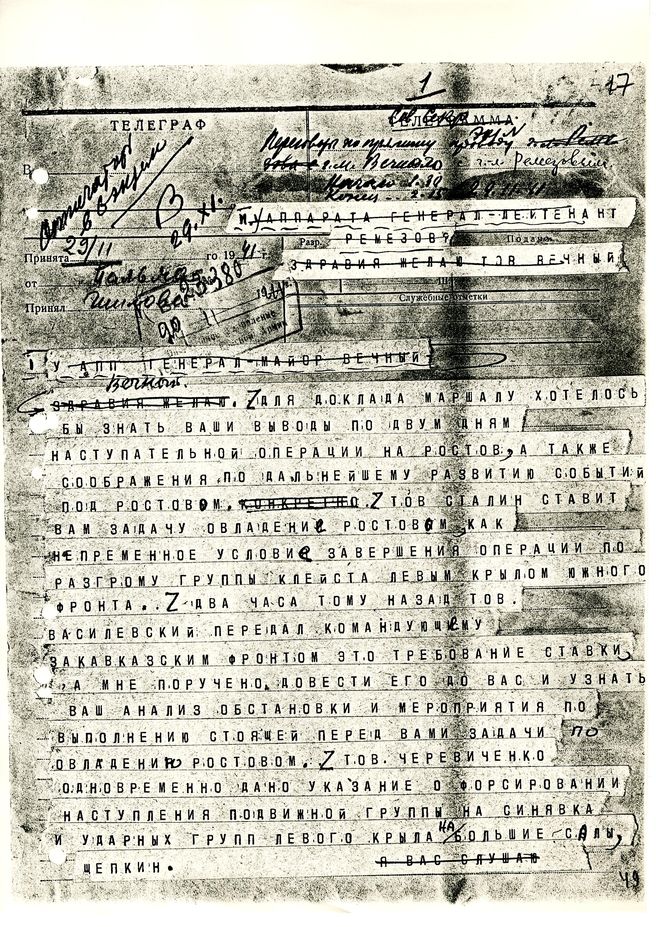 1
-17
ТЕЛЕГРАФ
ТЕЛЕГРАММА
Переговор по прямому проводу
г.м. Вечного
г-л Ремезовым
Начало 1-30
29.XI.
29/II
Принята го 1941 г.
от
Принял
Разр.
Подана
Служебные отметки
У АППАРАТА ГЕНЕРАЛ-ЛЕЙТЕНАНТ
РЕМЕЗОВ?
ЗДРАВИЯ ЖЕЛАЮ ТОВ ВЕЧНЫЙ
У АПП ГЕНЕРАЛ-МАЙОР ВЕЧНЫЙ
Вечный.
ЗДРАВИЯ ЖЕЛАЮ. ДЛЯ ДОКЛАДА МАРШАЛУ ХОТЕЛОСЬ
БЫ ЗНАТЬ ВАШИ ВЫВОДЫ ПО ДВУМ ДНЯМ
НАСТУПАТЕЛЬНОЙ ОПЕРАЦИИ НА РОСТОВ, А ТАКЖЕ
СООБРАЖЕНИЯ ПО ДАЛЬНЕЙШЕМУ РАЗВИТИЮ СОБЫТИЙ
ПОД РОСТОВОМ. КОНКРЕТНО. ТОВ СТАЛИН СТАВИТ
ВАМ ЗАДАЧУ ОВЛАДЕНИЕ РОСТОВОМ КАК
НЕПРЕМЕННОЕ УСЛОВИЕ ЗАВЕРШЕНИЯ ОПЕРАЦИИ ПО
РАЗГРОМУ ГРУППЫ КЛЕЙСТА ЛЕВЫМ КРЫЛОМ ЮЖНОГО
ФРОНТА.. ДВА ЧАСА ТОМУ НАЗАД ТОВ.
ВАСИЛЕВСКИЙ ПЕРЕДАЛ КОМАНДУЮЩЕМУ
ЗАКАВКАЗСКИМ ФРОНТОМ ЭТО ТРЕБОВАНИЕ СТАВКИ,
,А МНЕ ПОРУЧЕНО ДОВЕСТИ ЕГО ДО ВАС И УЗНАТЬ
ВАШ АНАЛИЗ ОБСТАНОВКИ И МЕРОПРИЯТИЯ ПО
ВЫПОЛНЕНИЮ СТОЯЩЕЙ ПЕРЕД ВАМИ ЗАДАЧИ по
ОВЛАДЕНИЮ РОСТОВОМ. ТОВ. ЧЕРЕВИЧЕНКО
ОДНОВРЕМЕННО ДАНО УКАЗАНИЕ О ФОРСИРОВАНИИ
НАСТУПЛЕНИЯ ПОДВИЖНОЙ ГРУППЫ НА СИНЯВКА
И УДАРНЫХ ГРУПП ЛЕВОГО КРЫЛА НА БОЛЬШИЕ САЛЫ,
ЩЕПКИН. Я ВАС СЛУШАЮ
49